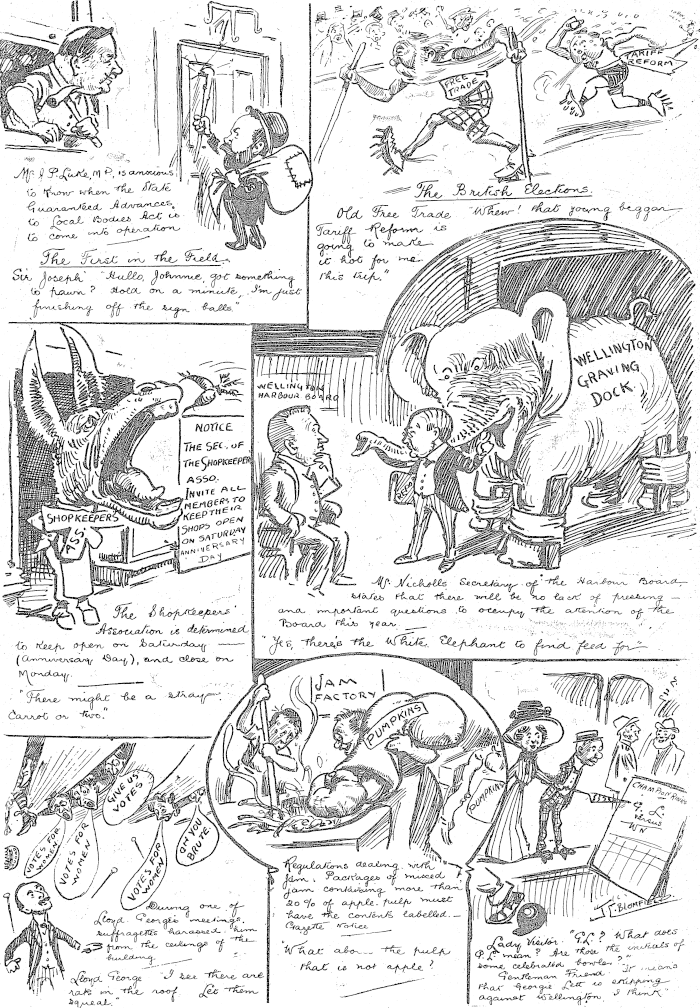 Mr J P Luke, M P, is anxious
to know when the State
Guaranteed Advances
to Local Bodies Act is
to come into operation
The First in the Field.
Sir Joseph "Hullo, Johnnie, got something
to pawn? Hold on a minute, I'm just
finishing off the sign balls."
FREE
TRADE
TARIFF
REFORM
The British Elections.
Old Free Trade "Whew! that young beggar
Tariff Reform is
going to make
it hot for me
this trip."
SHOPKEEPERS
ASS.
NOTICE
THE SEC. OF
THE SHOPKEEPER
ASSO.
INVITE ALL
MEMBERS TO
KEEP THEIR
SHOPS OPEN
ON SATURDAY
ANNIVERSARY
DAY
The Shopkeepers'
Association is determined
to keep open on Saturday
(Anniversary Day), and close on
Monday.
"There might be a stray
Carrot or two."
WELLINGTON
HARBOUR BOARD
WELLINGTON
GRAVING
DOCK.
Mr. Nicholls Secretary of the Harbour Board
states that there will be no lack of pressing
and important questions to occupy the attention of the
Board this year.
"Yes, there's the White Elephant to find feed for
GIVE US
VOTES
VOTES FOR
WOMEN
VOTES FOR
WOMEN
VOTES FOR
WOMEN
OH YOU
BRUTE
During one of
Lloyd George's meetings,
suffragettes harassed him
from the ceilings of the
building.
Lloyd George "I see there are
rats in the roof Let them
squeal."
JAM
FACTORY
PUMPKINS
PUMPKINS
Regulations dealing with
Jam. Packages of mixed
jam containing more than
20% of apple pulp must
have the contents labelled.
Gazette Notice
"What about the pulp
that is not apple?
CHAMPION RINKS
G. L.
versus
WN
J.C. BLOMFIELD
Lady Visitor. "G.L.? What does
G.L. mean? Are those the initials of
some celebrated bowler?"
Gentleman Friend "It means
that George Lett is skipping
against Wellington, I think"